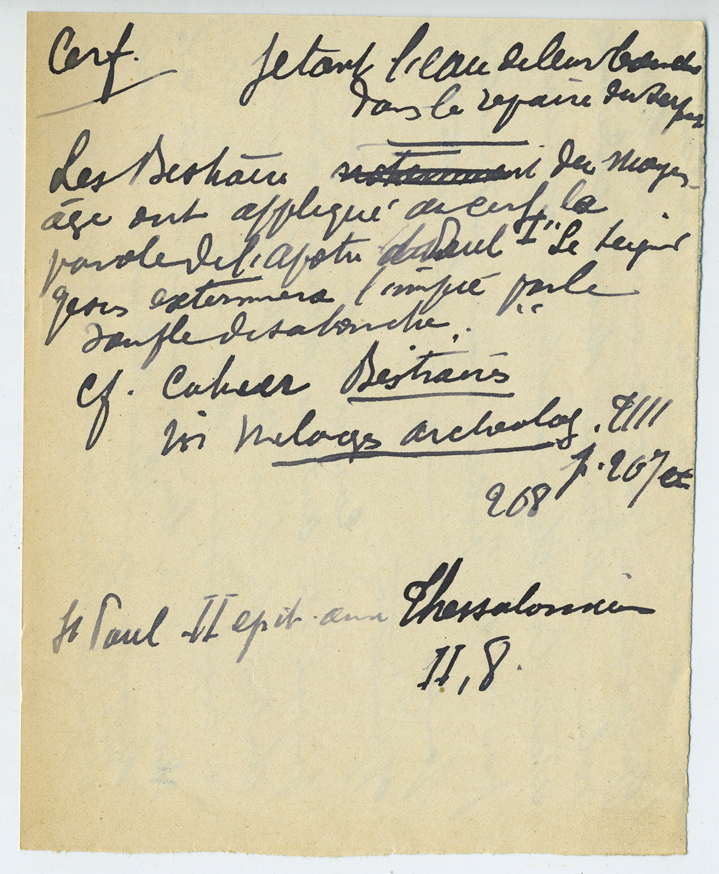 Cerf. Jetant l'eau de leur bouche
dans le repaire du serpent
Les Bestiaire du Moyen-
âge ont appliqué au cerf la
parole de l'apotre Paul "Le Seigneur
Jesus exterminera l'impie par le
soufle de sa bouche".
Cf. Cahier Bestiaires
in Melanges archeolog. TIII
p. 207 et
208
St Paul II epit. aux Thessaloniciens
II, 8.